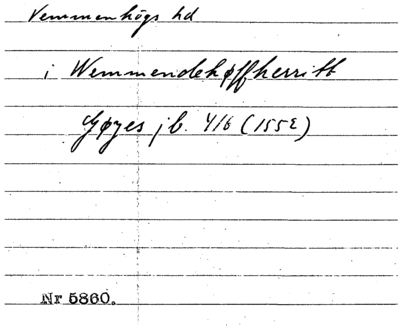 Vemmenhögs hd
i Wemmendehøffherritt
Gøyes jb. 416 (1552)
Nr 5860.